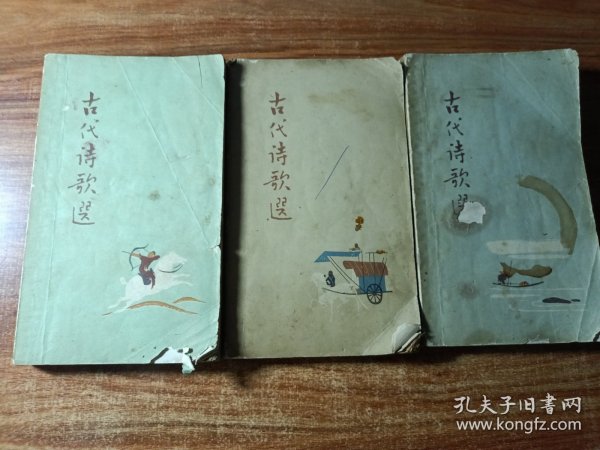 古代诗歌選
古代诗歌選
古代诗歌選
孔夫子旧书网
www.kongfz.com